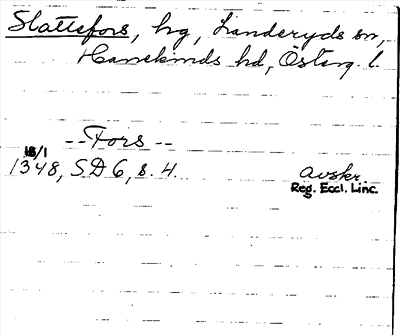 Slattefors, hg, Landeryds sn,
Hanekinds hd, Österg. l.
--Fors--
18/1
1348, SD 6, s. 4. avskr.
Reg. Eccl. Linc.